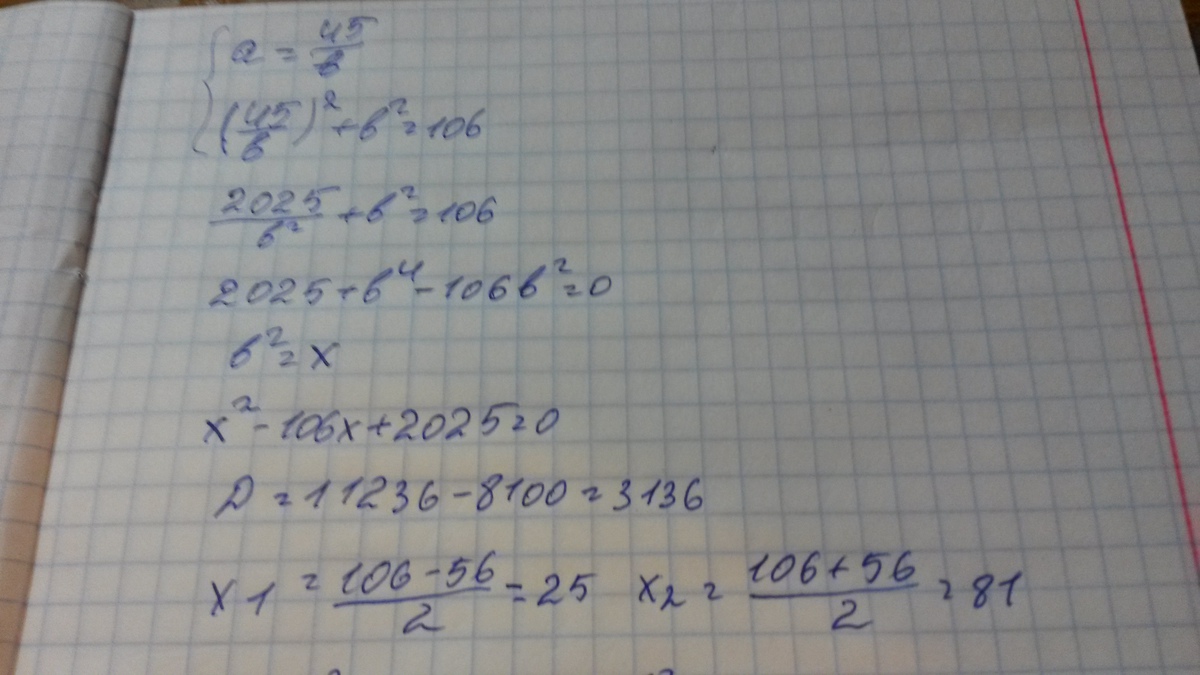 a = 45/в
(45/в)² + в² = 106
2025/в² + в² = 106
2025 + в⁴ - 106в² = 0
в² = x
x² - 106x + 2025 = 0
Д = 11236 - 8100 = 3136
x1 = (106 - 56)/2 = 25 x2 = (106 + 56)/2 = 81